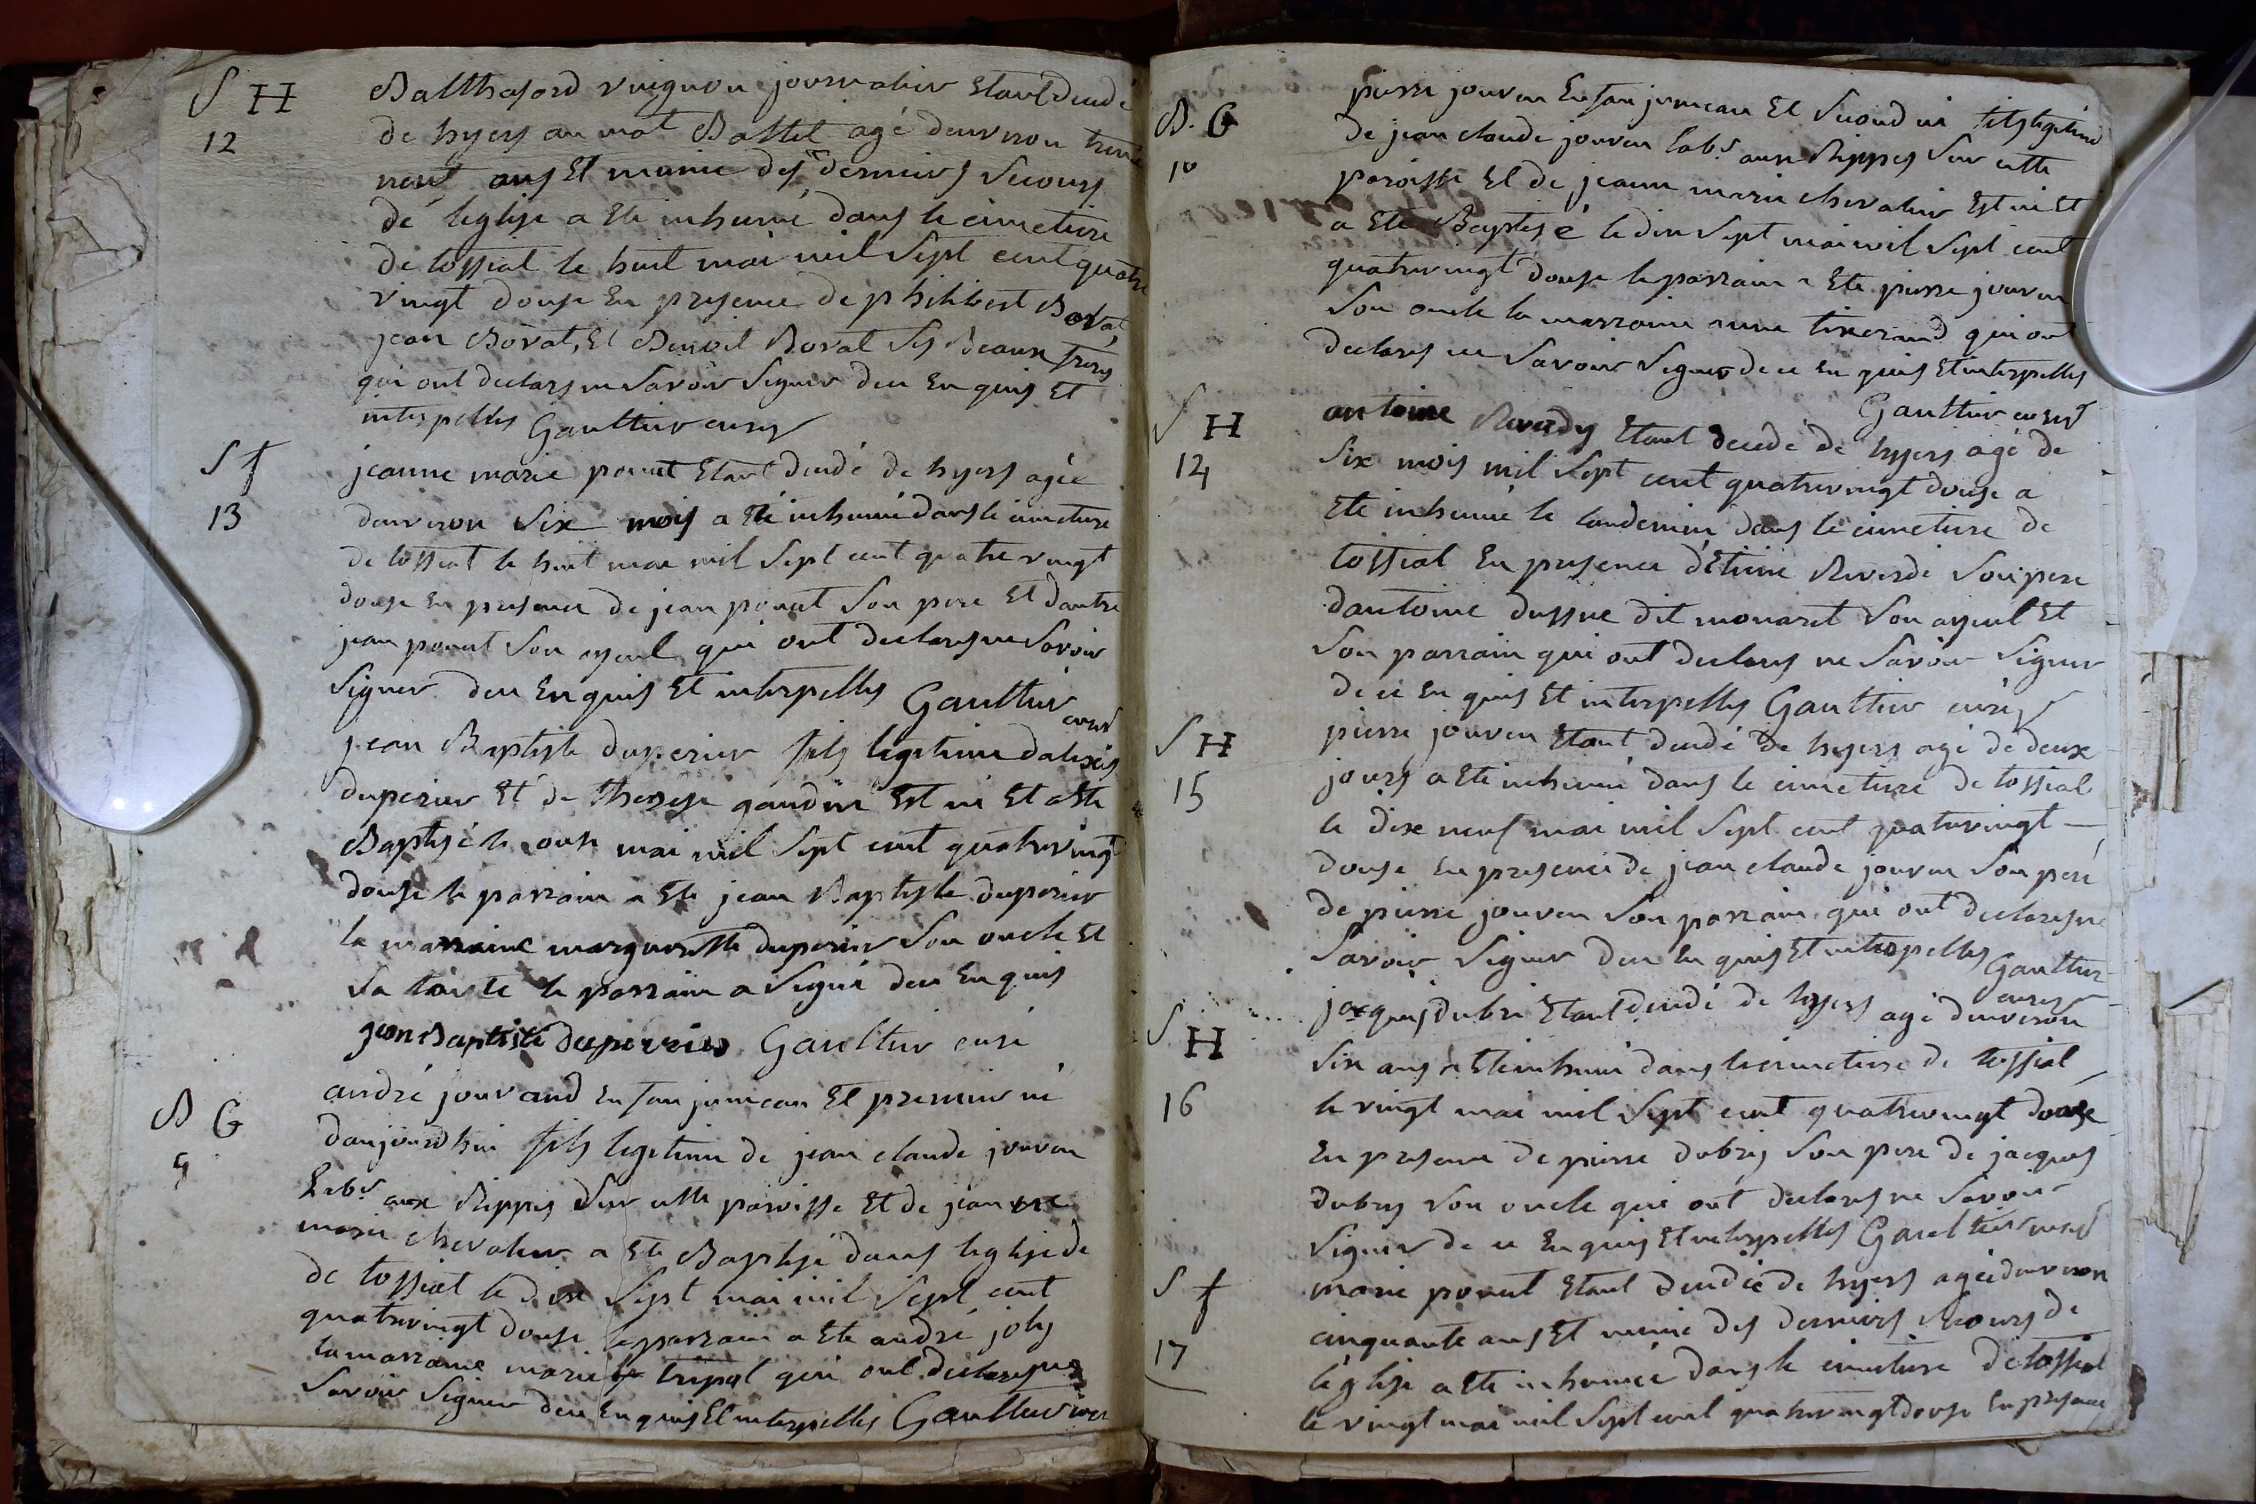 S H
12
Balthasard vuignon journalier etant decedé
de hyers au mat Battel agé denviron trente
neuf ans et munie des derniers secours
de leglise a ete inhumé dans le cimetiere
de tossiat le huit mai mil sept cent quatre
vingt douse en presence de philibert Borat
jean Borat, et Benoit Borat ses Beaux freres
qui ont declares ne savoir signer de ce enquis et
interpellés Gaultier curé
S f
13
jeanne marie ponut etant decedé de hyers agée
denviron six mois a été inhumé dans le cimetiere
de tossiat le huit mai mil sept cent quatre vingt
douse en presence de jean ponut son pere et dautre
jean ponut son ayeul qui ont declares ne savoir
signer de ce enquis et interpellés Gaultier
curé
jean Baptiste duperier fils legitime dalexis
duperier et de therese gaudin est né et a ete
Baptisé le onse mai mil sept cent quatrevingt
douse le parrain a ete jean Baptiste duperier
la marraine margueritte duperier son oncle et
sa tante le parrain a signé de ce enquis
jean Baptiste duperrier Gaultier curé
B G
9
andré jouvand enfan jumeau et premier né
daujourdhui fils legitime de jean claude jouven
labr aux Rippes sur cette paroisse et de jeanne
marie chevalier a ete Baptisé dans leglise de
de tossiat le dix sept mai mil sept cent
quatrevingt douse le parrain a ete andré joly
la marraine marie tripol qui ont declares ne
savoir signer de ce enquis et interpellés Gaultier curé
B. G
10
pierre jouven enfan jumeau et second né fils legitime
de jean claude jouven labr aux Rippes sur cette
paroisse et de jeanne marie chevalier est né et
a ete Baptisé le dix sept mai mil sept cent
quatrevingt douse le parrain a ete pierre jouven
son oncle la marraine anne tixerand qui ont
declares ne savoir signer de ce enquis et interpellés
Gaultier curé
S H
14
antoine Reverdy etant decedé de hyers agé de
six mois mil sept cent quatrevingt douse a
ete inhumé le landemin dans le cimetiere de
tossiat en presence d'Etiene Reverdi son pere
dantoine dussue dit monaret son ayeul et
son parrain qui ont declares ne savoir signer
de ce enquis et interpellés Gaultier curé
S H
15
pierre jouven etant decedé de hyers agé de deux
jours a ete inhumé dans le cimetiere de tossiat
le dix neuf mai mil sept cent quatrevingt
douse en presence de jean claude jouven son pere
de pierre jouven son parrain qui ont declares ne
savoir signer de ce enquis et interpellés Gaultier
curé
S H
16
jacques dubri etant decedé de hyers agé denviron
six ans a ete inhumé dans le cimetiere de tossiat
le vingt mai mil sept cent quatrevingt douse
en presence de pierre dubris son pere de jacques
dubris son oncle qui ont declares ne savoir
signer de ce enquis et interpellés Gaultier curé
S f
17
marie ponut etant decedée de hyers agée denviron
cinquante ans et munie des derniers secours de
léglise a ete inhumée dans le cimetiere de tossiat
le vingt mai mil sept cent quatrevingt douse en presence